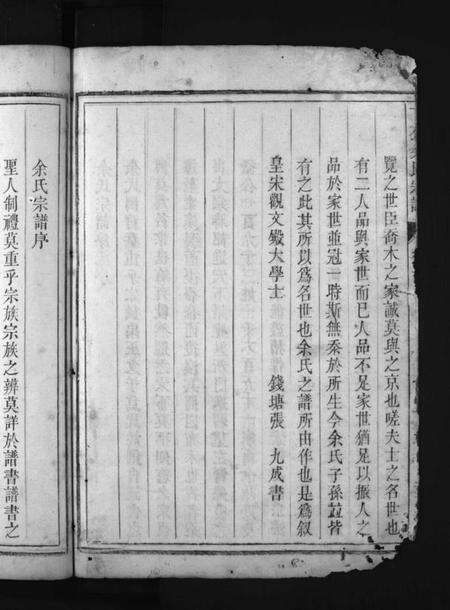 覽之世臣喬木之家誠莫與之京也嗟夫士之名世也
有二人品與家世而已人品不足家世猶足以振人之
品於家世並冠一時斯無忝於所生今余氏子孫並皆
有之此其所以為名世也余氏之譜所由作也是為叙
皇宋觀文殿大學士　錢塘張　九成書
余氏宗譜序
聖人制禮莫重乎宗族宗族之辨莫詳於譜書譜書之